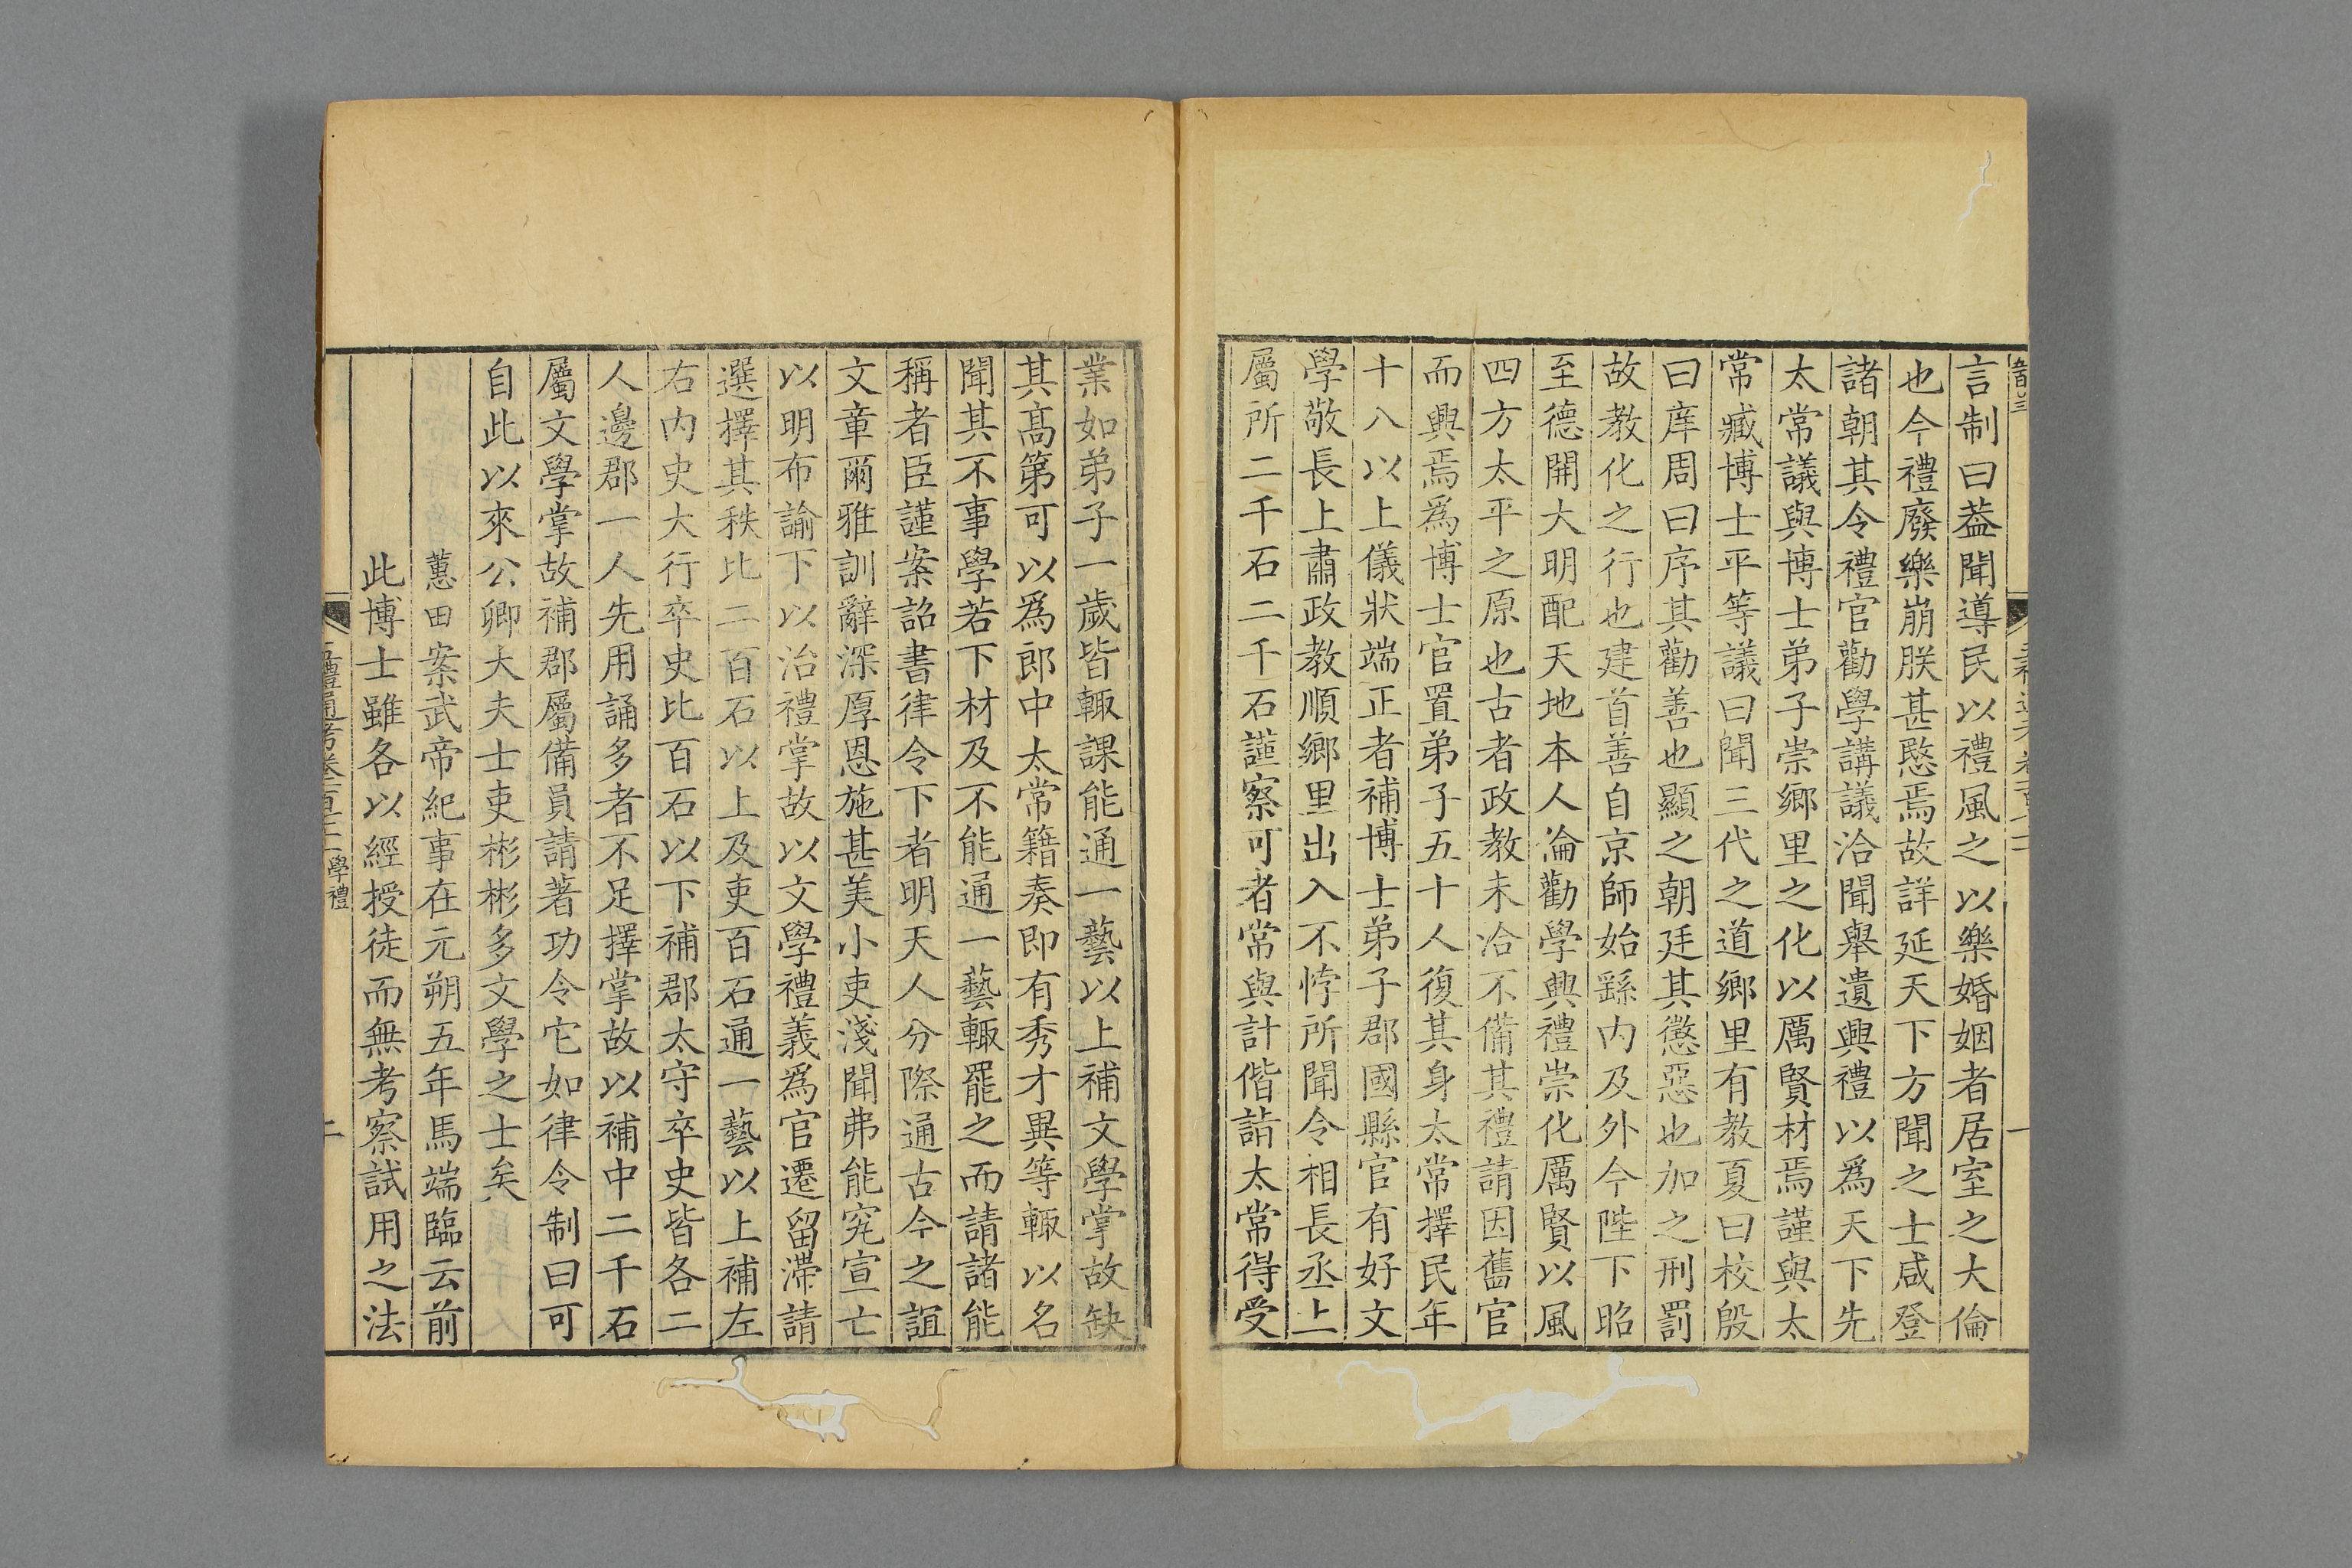 言制曰葢聞導民以禮風之以樂婚姻者居室之大倫
也今禮廢樂崩朕甚愍焉故詳延天下方聞之士咸登
諸朝其令禮官勸學講議洽聞舉遺興禮以爲天下先
太常議與博士弟子崇鄉里之化以厲賢材焉謹與太
常臧博士平等議曰聞三代之道鄉里有教夏曰校殷
曰庠周曰序其勸善也顯之朝廷其懲惡也加之刑罰
故教化之行也建首善自京師始繇内及外今陛下昭
至德開大明配天地本人倫勸學興禮崇化厲賢以風
四方太平之原也古者政教未洽不備其禮請因舊官
而興焉爲博士官置弟子五十人復其身太常擇民年
十八以上儀狀端正者補博士弟子郡國縣官有好文
學敬長上肅政教順鄉里出入不悖所聞令相長丞上
屬所二千石二千石謹察可者常與計偕詣太常得受
業如弟子一歲皆輙課能通一藝以上補文學掌故缺
其髙第可以爲郎中太常籍奏即有秀才異等輙以名
聞其不事學若下材及不能通一藝輙罷之而請諸能
稱者臣謹案詔書律令下者明天人分際通古今之誼
文章爾雅訓辭深厚恩施甚美小吏淺聞弗能究宣亡
以明布諭下以治禮掌故以文學禮義爲官遷留滯請
選擇其秩比二百石以上及吏百石通一藝以上補左
右内史大行卒史比百石以下補郡太守卒史皆各二
人邊郡一人先用誦多者不足擇掌故以補中二千石
屬文學掌故補郡屬備員請著功令它如律令制曰可
自此以來公卿大夫士吏彬彬多文學之士矣
蕙田案武帝紀事在元朔五年馬端臨云前
此博士雖各以經授徒而無考察試用之法
五禮通考卷一百七十二 學禮 二